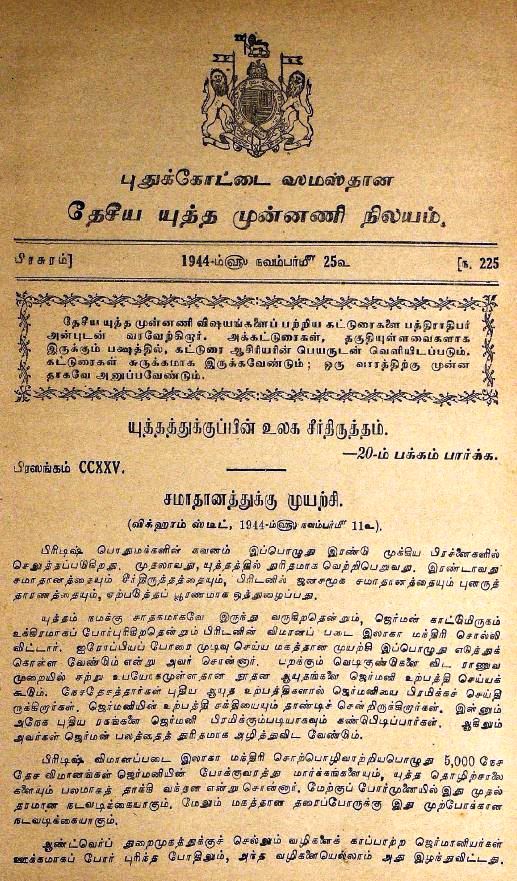 புதுக்கோட்டை ஸமஸ்தான
தேசீய யுத்த முன்னணி நிலயம்.
பிரசுரம்] 1944-ம்௵ நவம்பர்௴ 25௳ [ந. 225
தேசீய யுத்த முன்னணி விஷயங்களைப் பற்றிய கட்டுரைகளை பத்திராதிபர்
அன்புடன் வரவேற்கிறார். அக்கட்டுரைகள், தகுதியுள்ளவைகளாக
இருக்கும் பக்ஷத்தில், கட்டுரை ஆசிரியரின் பெயருடன் வெளியிடப்படும்.
கட்டுரைகள் சுருக்கமாக இருக்கவேண்டும்; ஒரு வாரத்திற்கு முன்ன
தாகவே அனுப்பவேண்டும்.
யுத்தத்துக்குப்பின் உலக சீர்திருத்தம்.
—20-ம் பக்கம் பார்க்க.
பிரஸங்கம் CCXXV.
சமாதானத்துக்கு முயற்சி.
(விக்ஹாம் ஸ்டீட், 1944-ம்௵ நவம்பர்௴ 11௳).
பிரிடிஷ் பொதுமக்களின் கவனம் இப்பொழுது இரண்டு முக்கிய பிரச்னைகளில்
செலுத்தப்படுகிறது. முதலாவது, யுத்தத்தில் துரிதமாக வெற்றிபெறுவது. இரண்டாவது
சமாதானத்தையும் சீர்திருத்தத்தையும், பிரிடனில் ஜனசமூக சமாதானத்தையும் புனருத்
தாரணத்தையும், ஏற்படுத்தப் பூரணமாக ஒத்துழைப்பது.
யுத்தம் நமக்கு சாதகமாகவே இருந்து வருகிறதென்றும், ஜெர்மன் காட்டுமிருகம்
உக்கிரமாகப் போர்புரிகிறதென்றும் பிரிடனின் விமானப் படை இலாகா மந்திரி சொல்லி
விட்டார். ஐரோப்பியப் போரை முடிவு செய்ய மகத்தான முயற்சி இப்பொழுது எடுத்துக்
கொள்ள வேண்டும் என்று அவர் சொன்னார். பறக்கும் வெடிகுண்டுகளை விட ராணுவ
முறையில் சற்று உபயோகமுள்ளதான நூதன ஆயுதங்களை ஜெர்மனி உற்பத்தி செய்யக்
கூடும். நேசதேசத்தார்கள் புதிய ஆயுத உற்பத்திகளால் ஜெர்மனியை பிரமிக்கச் செய்தி
ருக்கிறார்கள். ஜெர்மனியின் உற்பத்தி சக்தியையும் தாண்டிச் சென்றிருக்கிறார்கள். இன்னும்
அநேக புதிய ரகங்களை ஜெர்மனி பிரமிக்கும்படியாகவும் கண்டுபிடிப்பார்கள். ஆகிலும்
அவர்கள் ஜெர்மன் பலத்தைத் துரிதமாக அழித்துவிட வேண்டும்.
பிரிடிஷ் விமானப்படை இலாகா மந்திரி சொற்பொழிவாற்றியபொழுது 5,000 நேச
தேச விமானங்கள் ஜெர்மனியின் போக்குவரத்து மார்க்கங்களையும், யுத்த தொழிற்சாலை
களையும் பலமாகத் தாக்கி வந்தன என்று சொன்னார். மேற்குப் போர்முனையில் இது முதல்
தரமான நடவடிக்கையாகும். மேலும் மகத்தான தரைப்போருக்கு இது முற்போக்கான
நடவடிக்கையாகும்.
ஆண்ட்வெர்ப் துறைமுகத்துக்குச் செல்லும் வழிகளைக் காப்பாற்ற ஜெர்மானியர்கள்
ஊக்கமாகப் போர் புரிந்த போதிலும், அந்த வழிகளையெல்லாம் அது இழந்துவிட்டது.